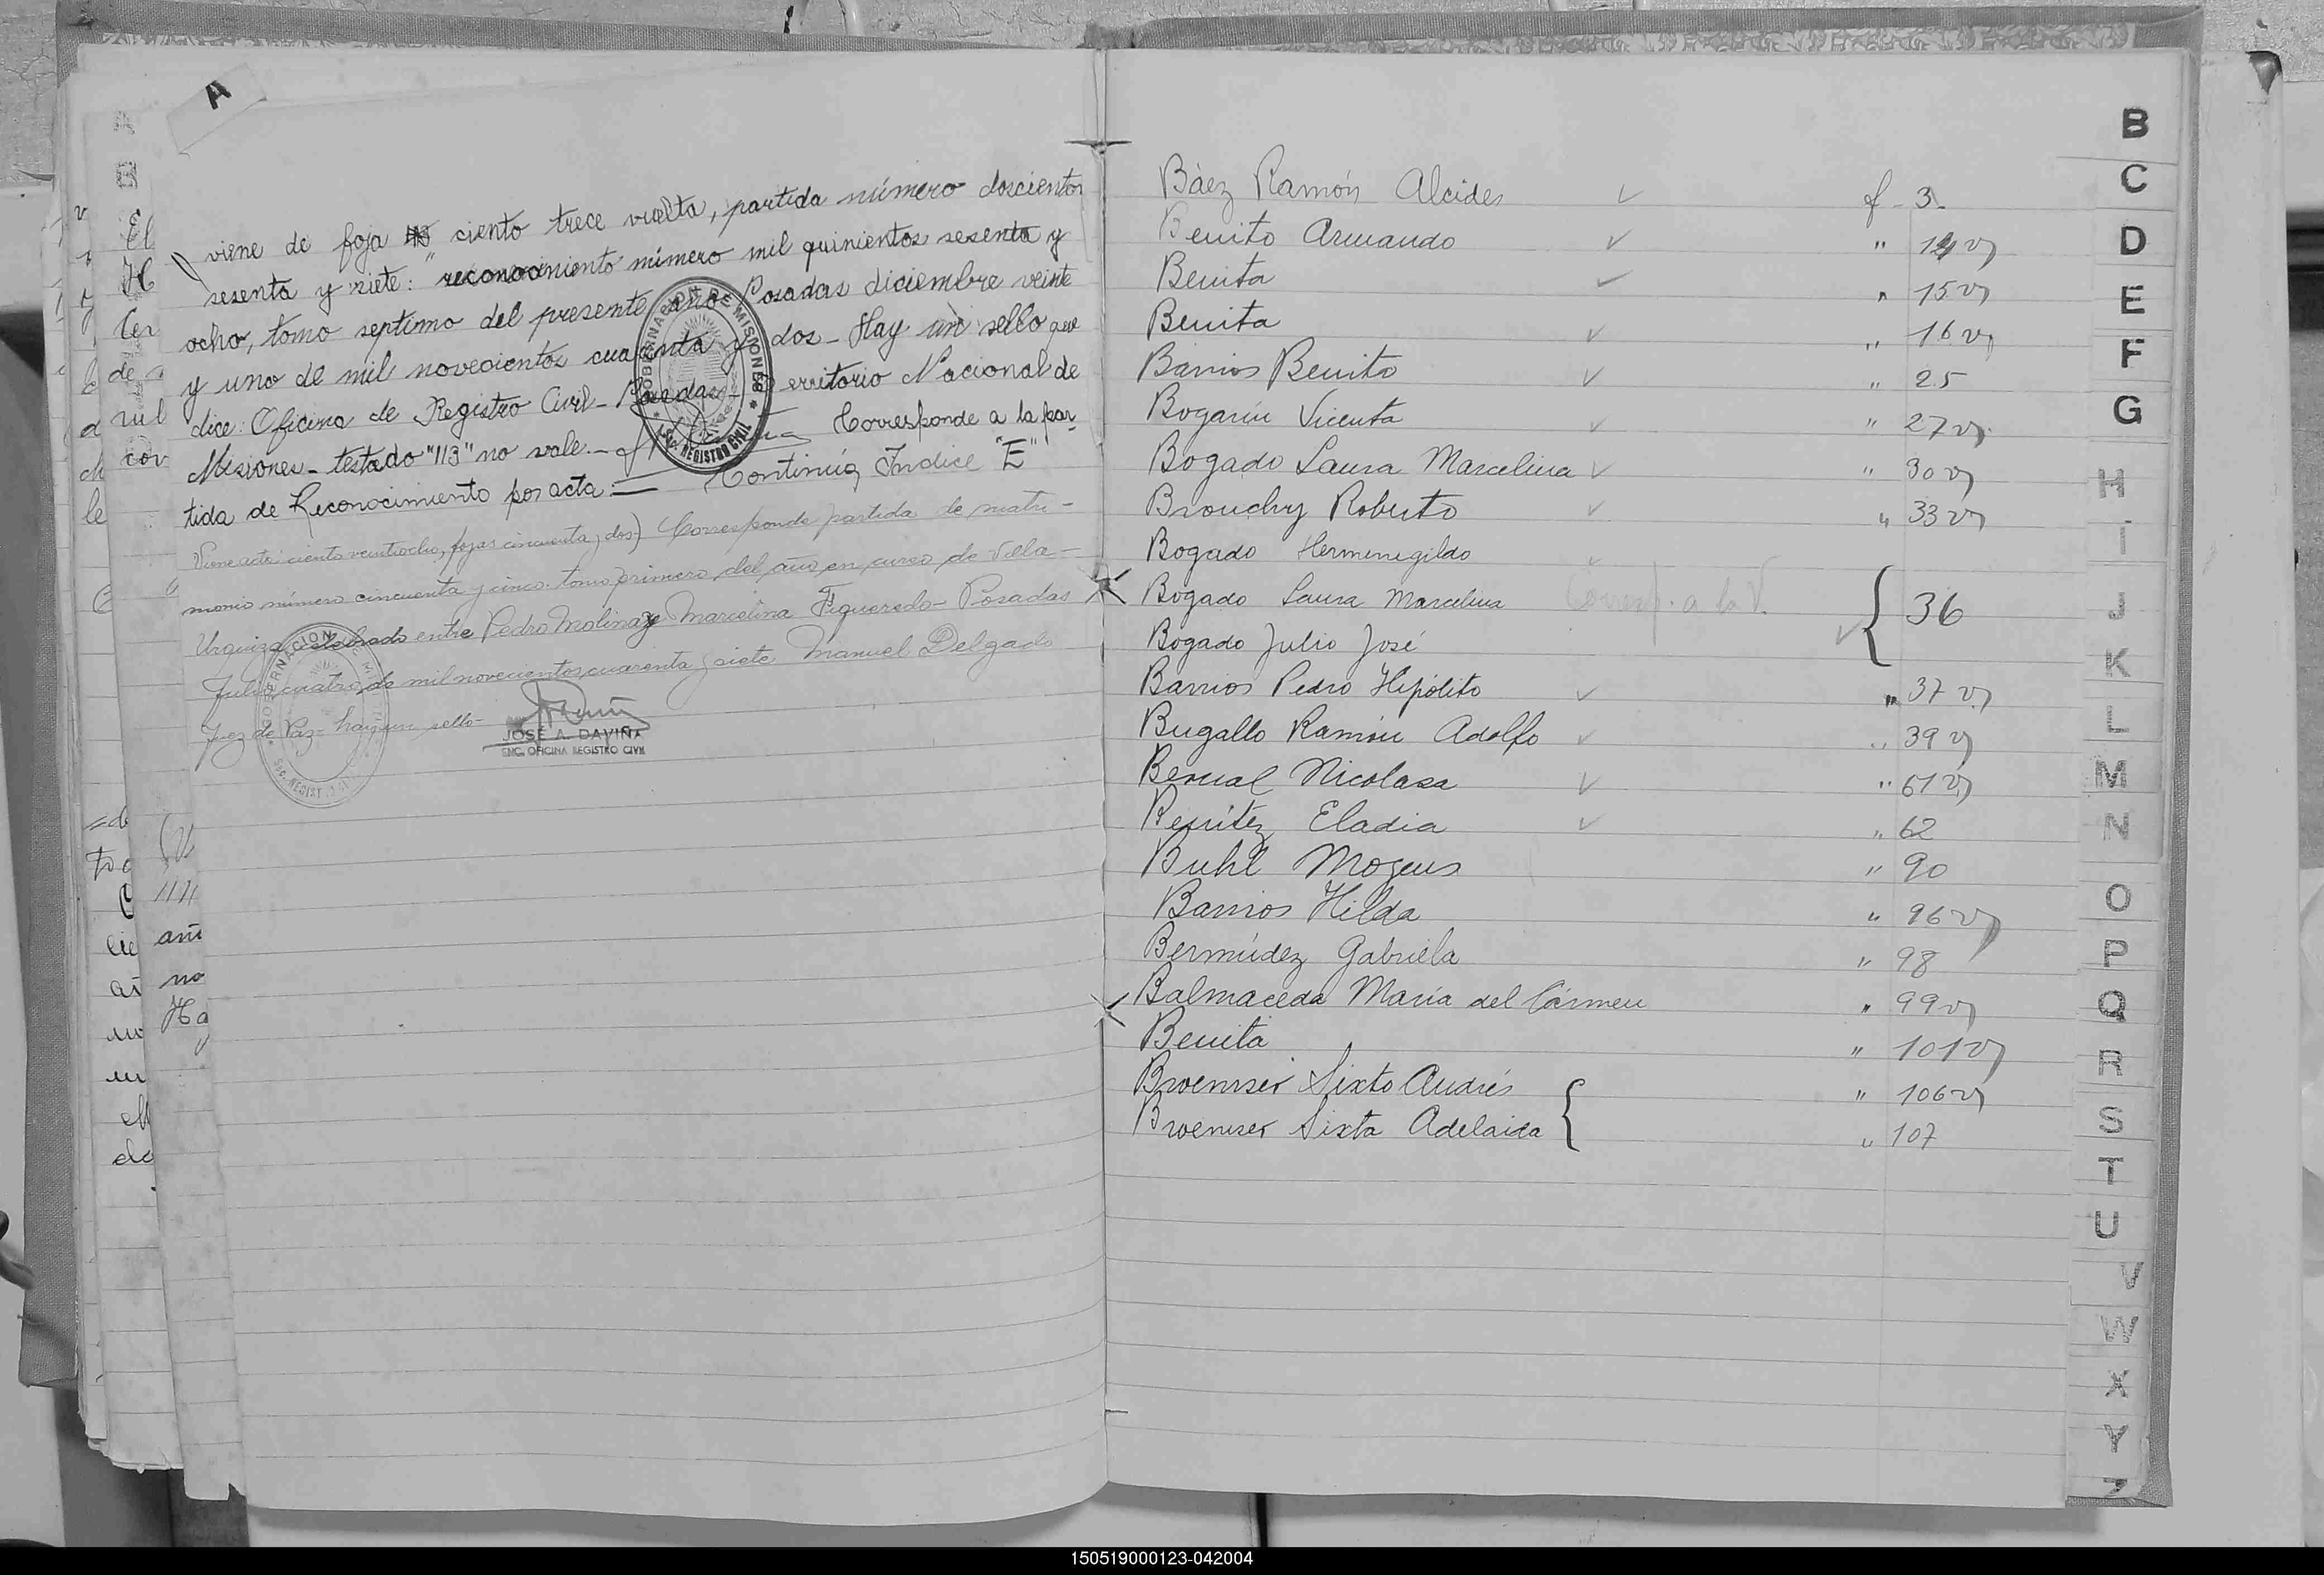 A
viene de foja 113 ciento trece vuelta, partida número doscientos
sesenta y siete: "reconocimiento número mil quinientos sesenta y
ocho, tomo septimo del presente año- Posadas diciembre veinte
y uno de mil novecientos cuarenta y dos- Hay un sello que
dice: Oficina de Registro Civil- Posadas- Territorio Nacional de
Misiones- testado "113" no vale.-
Corresponde a la par-
tida de Reconocimiento por acta:= Continúa Indice "E"
Viene acta ciento veintiocho, fojas cincuenta y dos) Corresponde partida de matri-
monio número cincuenta y cinco. tomo primero del año en curso de Villa-
Urquiza celebrado entre Pedro Molina y Marcelina Figueredo- Posadas
Julio cuatro de mil novecientos cuarenta y siete Manuel Delgado
Juez de Paz- hay un sello-
GOBERNACION DE MISIONES
SEC. REGISTRO CIVIL
JOSÉ A. DAVIÑA
ENC. OFICINA REGISTRO CIVIL
Báez Ramón Alcides f- 3.
Benito Armando " 14 v
Benita " 15 v
Benita " 16 v
Barrios Benito " 25
Bogarín Vicenta " 27 v
Bogado Laura Marcelina " 30 v
Brouchy Roberto " 33 v
Bogado Hermenegildo
Bogado Laura Marcelina Corresp. a la V. { 36
Bogado Julio José
Barrios Pedro Hipólito " 37 v
Bugallo Ramón Adolfo " 39 v
Bernal Nicolasa " 61 v
Benítez Eladia " 62
Buhl Mogens " 90
Barrios Hilda " 96 v
Bermúdez Gabriela " 98
Balmaceda María del Cármen " 99 v
Benita " 101 v
Broemser Sixto Andrés " 106 v
Broemser Sixta Adelaida { " 107
B
C
D
E
F
G
H
I
J
K
L
M
N
O
P
Q
R
S
T
U
V
W
X
Y
Z
150519000123-042004